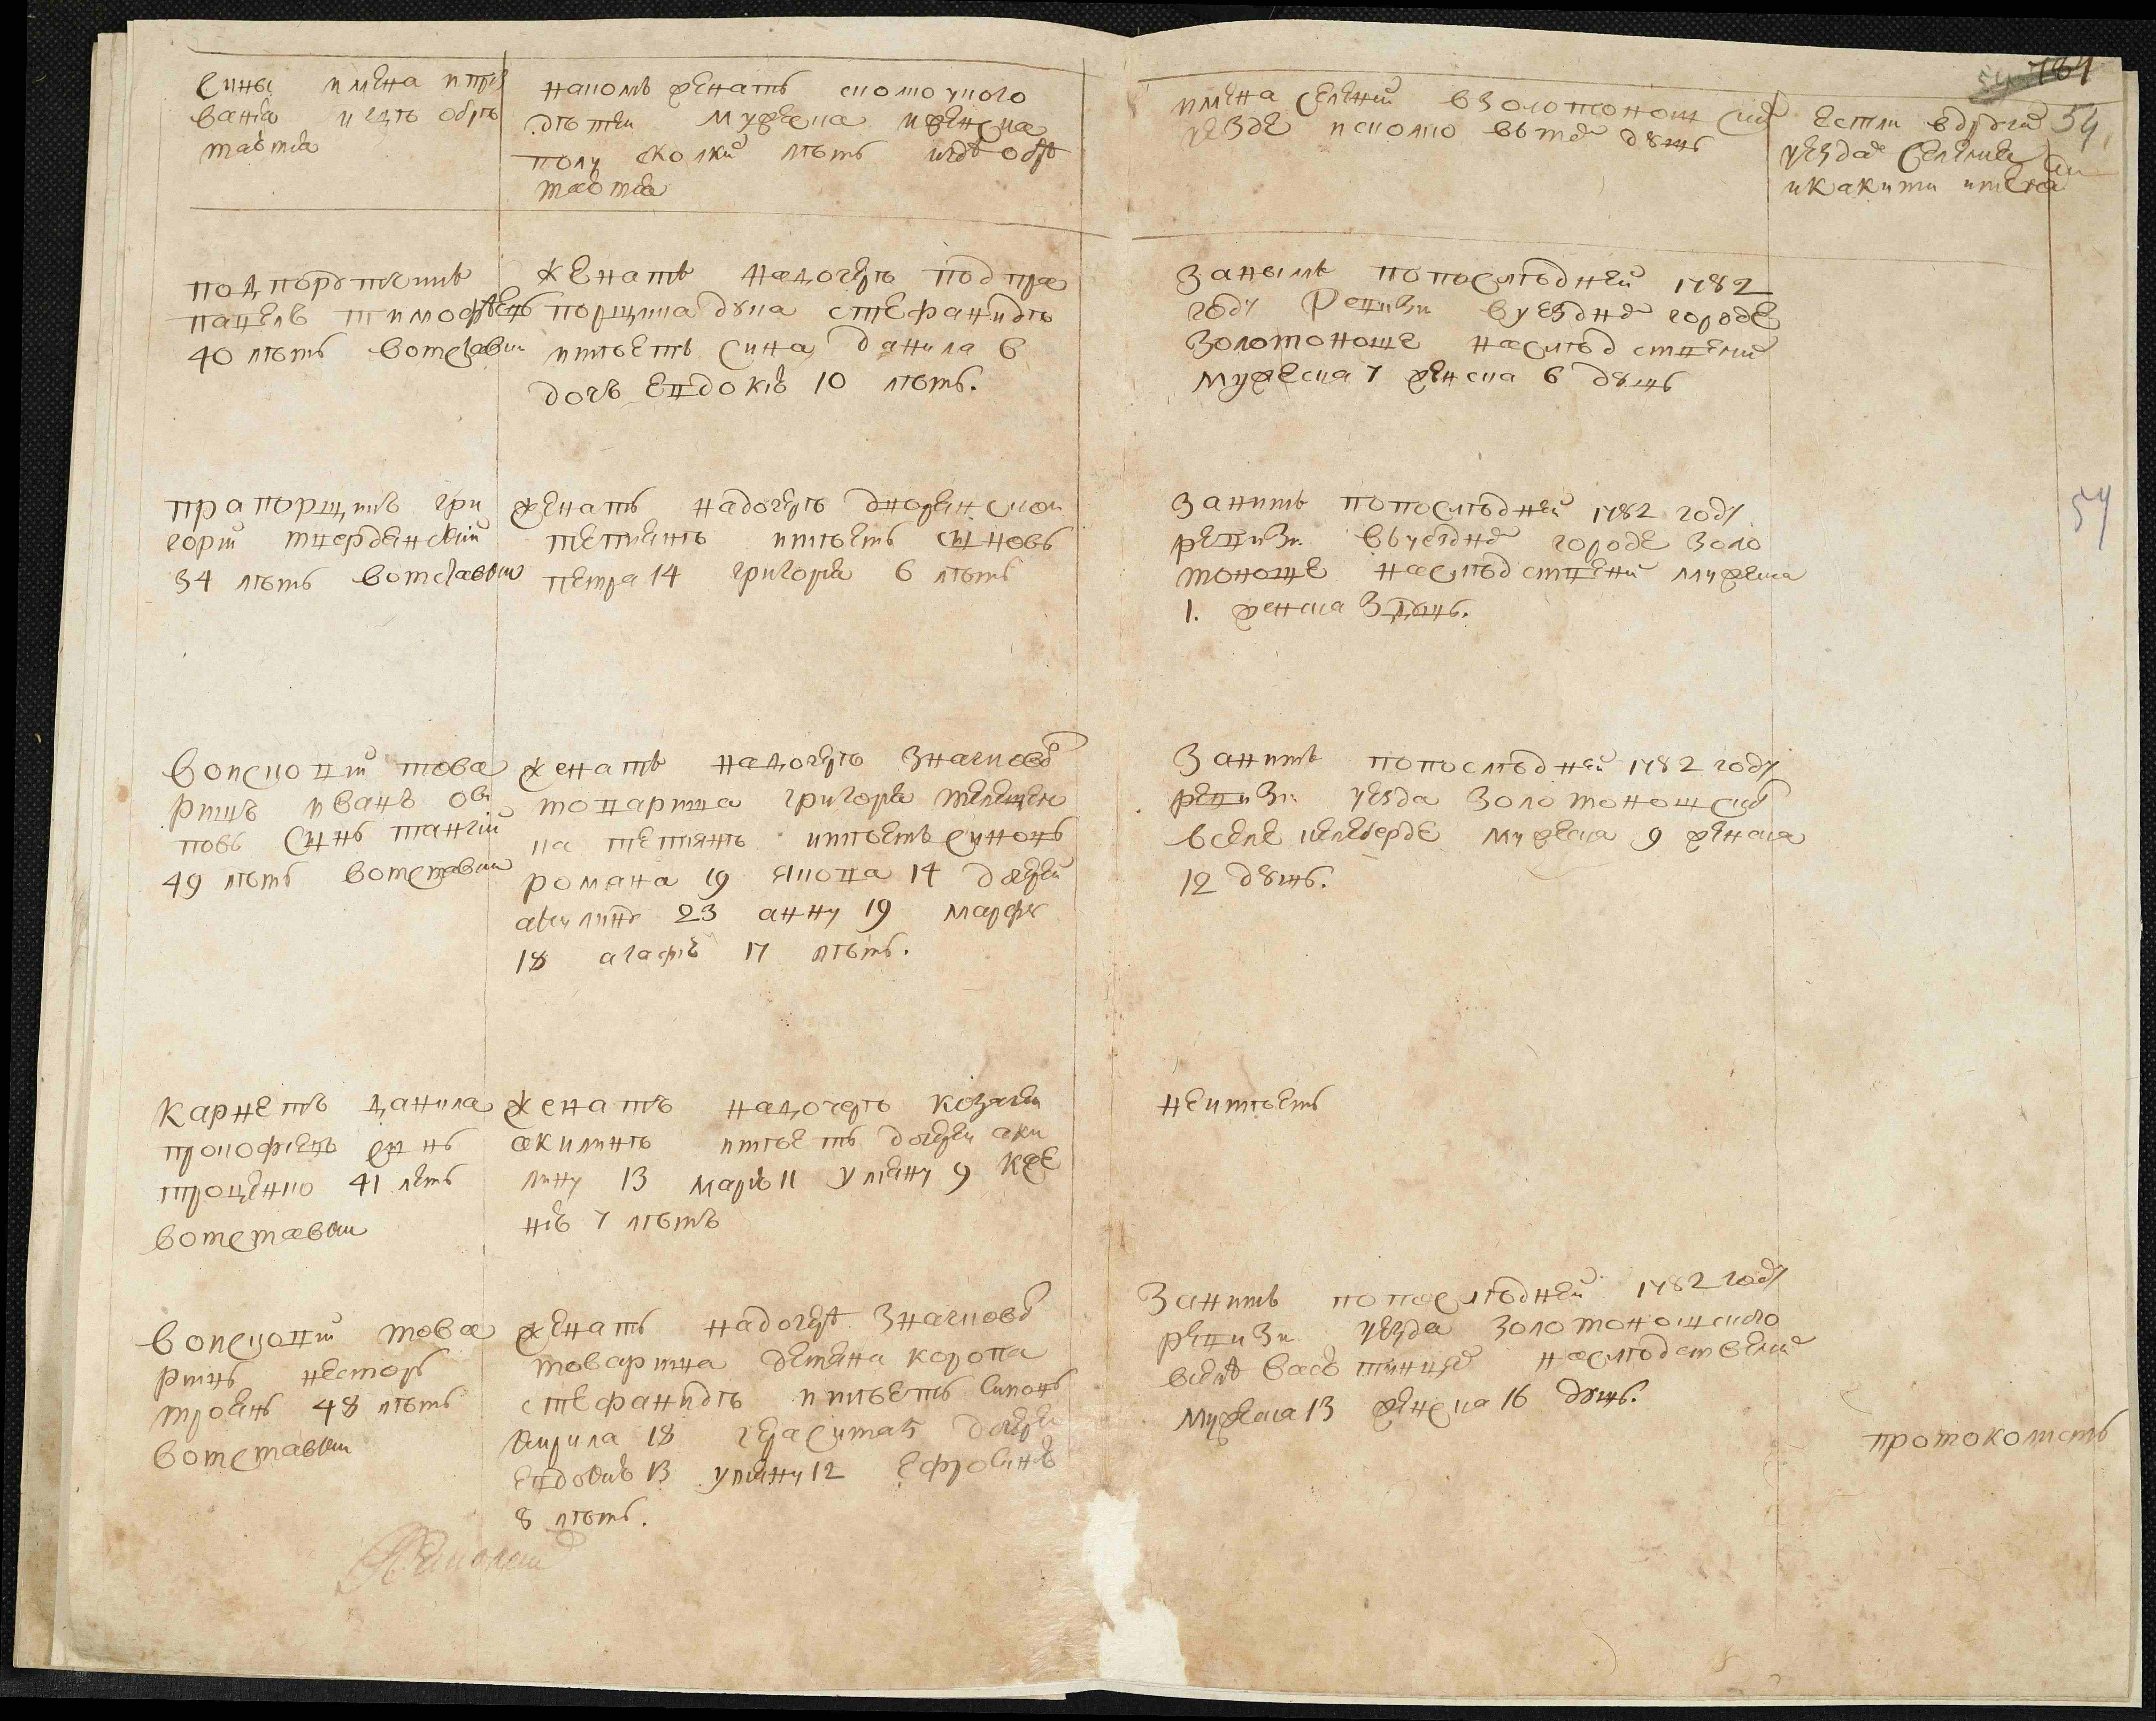 Чины имена и проз
вания и гдѣ обрѣ
таются
на комъ женатъ сколко у кого
дѣтей мужеска и женска
полу сколки лѣтъ и гдѣ обрѣ
таются
имена селеній в золотоношском
уезде и сколко въ техъ душъ
Естли в других
уездах селения
и как оти имена
54
подпорутчикъ
павелъ тимофѣевъ
40 лѣтъ вотставки
женатъ на дочерѣ подпра
порщика дука стефанидѣ
имѣетъ сина данила 6
дочь евдокію 10 лѣтъ.
За нымъ по послѣдней 1782
году ревизи в уездном городе
Золотоноше наслѣдствений
мужеска 7 женска 6 душъ
прапорщикъ гри
горий тверданский
34 лѣтъ вотставки
женатъ на дочерѣ дворянской
тетиянѣ имѣетъ синовъ
петра 14 григория 6 лѣтъ
За нимъ по послѣдней 1782 году
ревизи въ уездном городе золо
тоноше наслѣдствений мужеска
1. женска 3 душъ.
54
войсковий това
рищъ иванъ
повъ синъ
49 лѣтъ вотставки
женатъ на дочерѣ значкового
товариша григория
тетянѣ имѣетъ синовъ
романа 19 якова 14 дочерей
акилину 23 анну 19 марфу
18 агафию 17 лѣтъ.
За нимъ по послѣдней 1782 году
ревизи уезда золотоношского
в селе келеберде мужеска 9 женска
12 душъ.
карнетъ данила
прокофіевъ синъ
троценко 41 летъ
вотставки
женатъ на дочерѣ козачей
акилинѣ имѣетъ дочерей аки
лину 13 марию 11 улияну 9 ксе
нию 7 лѣтъ
не имѣетъ
войсковий това
рищъ несторъ
троянъ 48 лѣтъ
вотставки
женатъ на дочерѣ значкового
товарища демяна коропа
стефанидѣ имѣетъ синовъ
кирила 18 герасима 5 дочерей
евдокию 13 улияну 12 ефросинию
8 лѣтъ.
За нимъ по послѣдней 1782 году
ревизи уезда золотоношского
в селѣ васютинцях наслѣдствений
мужеска 13 женска 16 душъ.
протоколистъ